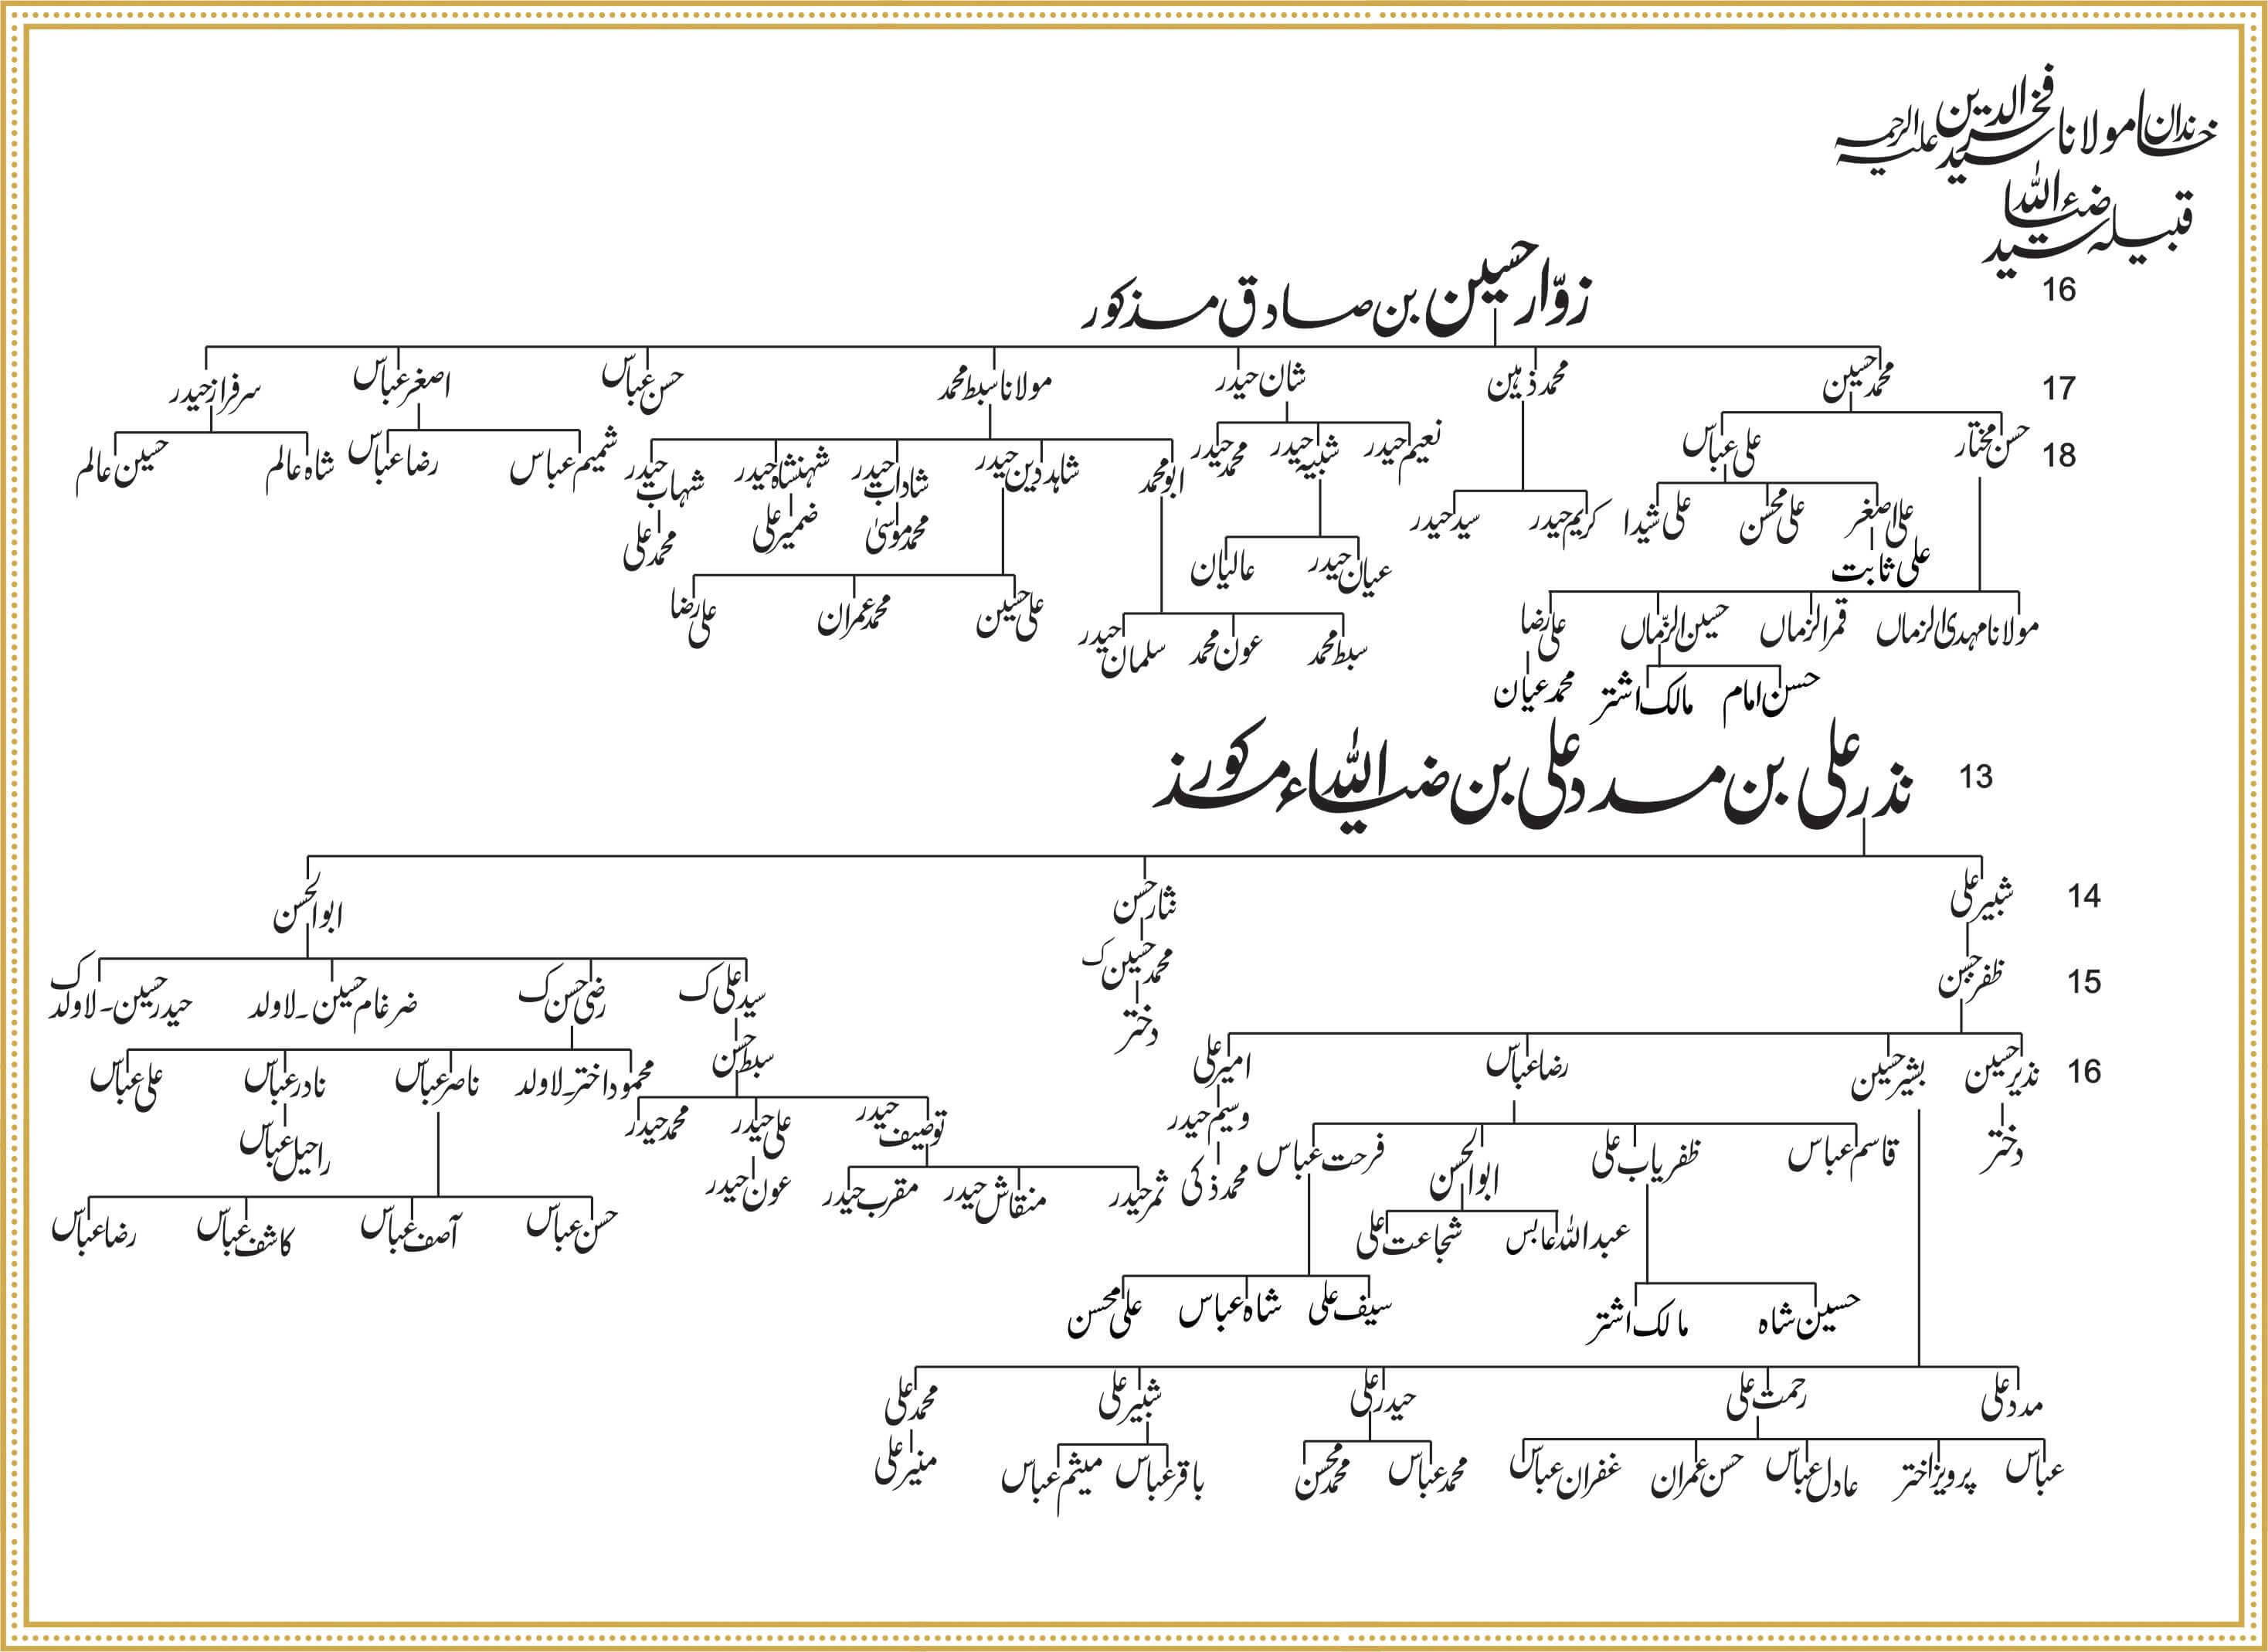 خاندان مولانا سید فخرالدین علیہ الرحمہ
قبیلہ سید ضیاءاللہ
16
زوّار حسین بن صادق مذکور
17
محمد حسین محمد ذہین شان حیدر مولانا سبط محمد حسن عباس اصغر عباس سرفراز حیدر
18
حسن مختار علی عباس نعیم حیدر شبیہ حیدر محمد حیدر ابو محمد شاہد دین حیدر شاداب حیدر شہنشاہ حیدر شہاب حیدر شمیم عباس رضا عباس شاہ عالم حسین عالم
علی اصغر علی محسن علی شیدا کریم حیدر سید حیدر محمد موسیٰ ضمیر علی محمد علی
علی ثابت عیان حیدر عالیان
مولانا مہدی الزماں قمر الزماں حسین الزّماں علی رضا سبط محمد عون محمد سلمان حیدر علی حسین محمد عمران علی رضا
حسن امام مالک اشتر محمد عیان
13
نذر علی بن مدد علی بن ضیاءاللہ مذکور
14
شبیر علی نثار حسن ابوالحسن
15
ظفر حسن محمد حسین ک سید علی ک رضی حسن ک ضرغام حسین۔لاولد حیدر حسین۔لاولد ک
دختر
16
نذیر حسین بشیر حسین رضا عباس امیر علی سبط حسن محمود اختر۔لاولد ناصر عباس نادر عباس علی عباس
دختر قاسم عباس ظفریاب علی ابوالحسن فرحت عباس وسیم حیدر توصیف حیدر علی حیدر محمد حیدر راحیل عباس
محمد ذکی ثمر حیدر منقاش حیدر مقرب حیدر عون حیدر
عبداللہ عابس شجاعت علی حسن عباس آصف عباس کاشف عباس رضا عباس
حسین شاہ مالک اشتر سیف علی شاہ عباس علی محسن
مدد علی رحمت علی حیدر علی شبیر علی محمد علی
عباس پرویز اختر عادل عباس حسن عمران غفران عباس محمد عباس محمد محسن باقر عباس میثم عباس منیر علی